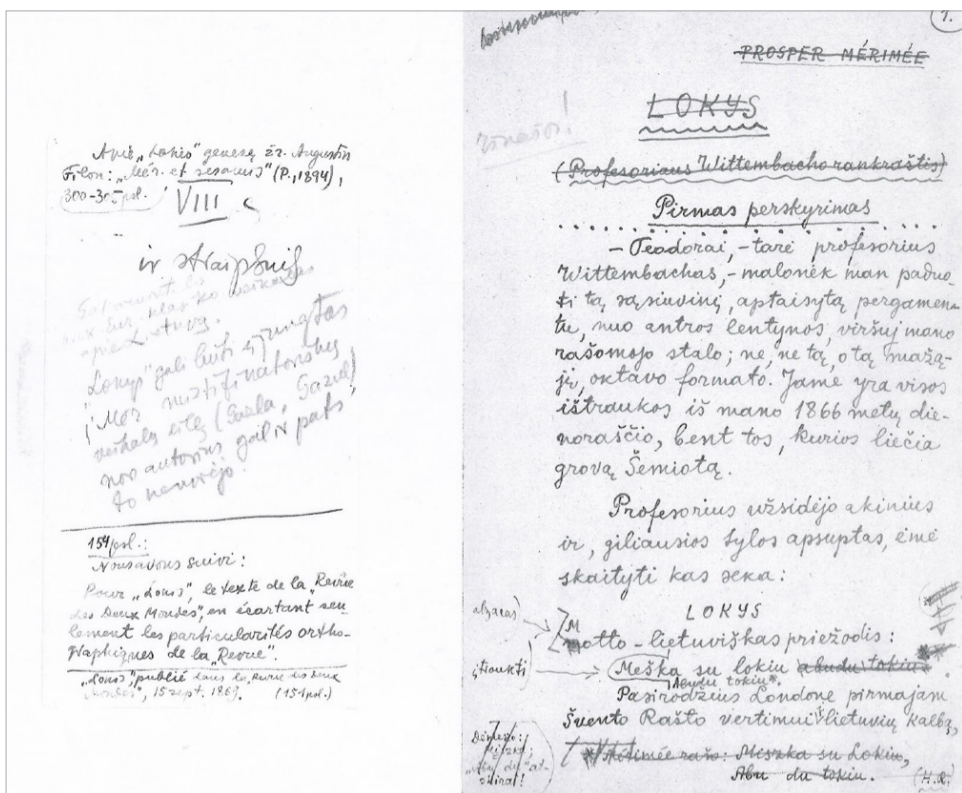 Apie „Lokio" genezę žr. Augustin
Filon: „Mér. et ses amis" (P., 1894),
300-305 psl.
VIII
ir straipsnis
apie Lietuvą.
„Lokys" gali būti įjungtas
į Mér mistifikatoriškų
veikalų eilę (Guzla, Gazul)
nors autorius gal ir pats
to nenorėjo.
154 psl.:
Nous avons suivi:
Pour „Lokis", le texte de la „Revue
des Deux Mondes", en écartant seu-
lement les particularités ortho-
graphiques de la „Revue".
„Lokis", publié dans la Revue des Deux
Mondes", 15 sept. 1869. (154 psl.)
1.
PROSPER MÉRIMÉE
LOKYS
(Profesoriaus Wittembacho rankraštis)
Pirmas perskyrimas
– Teodorai, – tarė profesorius
Wittembachas, – malonėk man paduo-
ti tą sąsiuvinį, aptaisytą pergamen-
tu, nuo antros lentynos, viršuj mano
rašomojo stalo; ne, ne tą, o tą mažą-
jį, oktavo formato. Jame yra visos
ištraukos iš mano 1866 metų die-
noraščio, bent tos, kurios liečia
grovą Šemiotą.
Profesorius užsidėjo akinius
ir, giliausios tylos apsuptas, ėmė
skaityti kas seka:
LOKYS
Motto – lietuviškas priežodis:
įtraukti
Meška su lokiu abudu tokiu.
Abudu tokiu*.
Pasirodžius Londone pirmajam
Švento Rašto vertimui lietuvių kalba,
*/ Mérimée rašo: Miszka su Lokiu,
Abu du tokiu.
(H.R.)